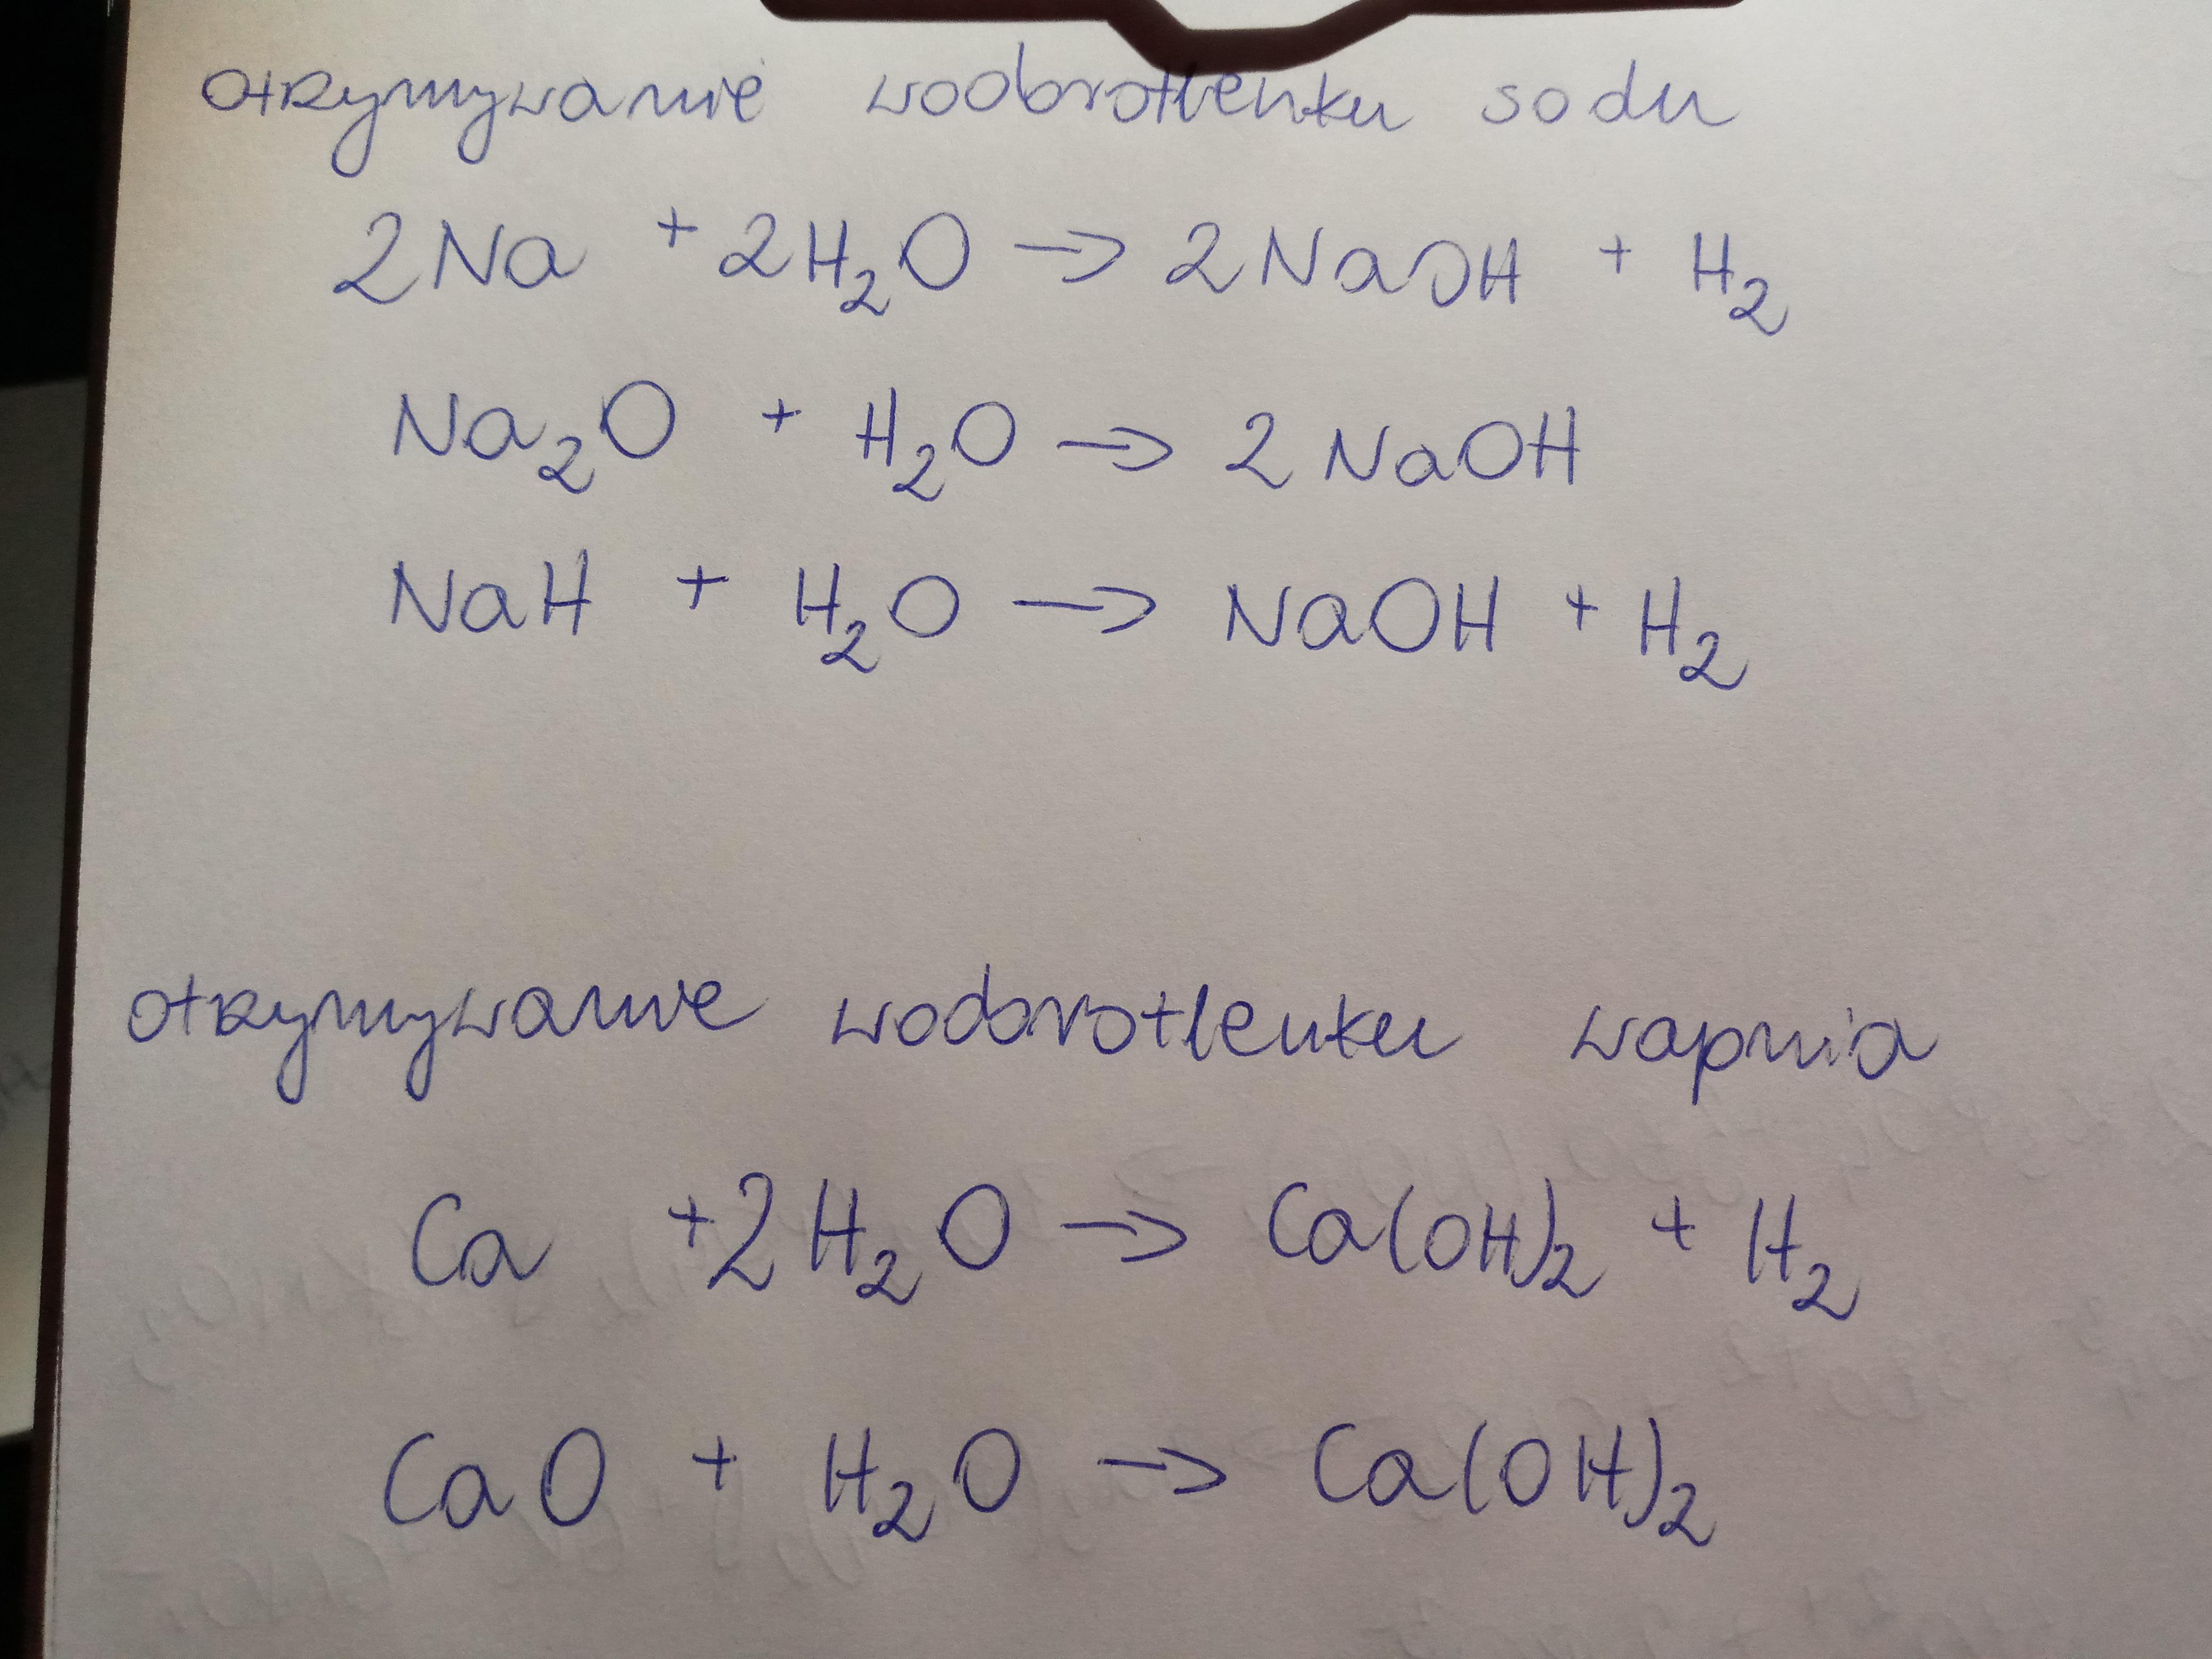 otrzymywanie wodorotlenku sodu
2Na + 2H₂O → 2NaOH + H₂
Na₂O + H₂O → 2NaOH
NaH + H₂O → NaOH + H₂
otrzymywanie wodorotlenku wapnia
Ca + 2H₂O → Ca(OH)₂ + H₂
CaO + H₂O → Ca(OH)₂